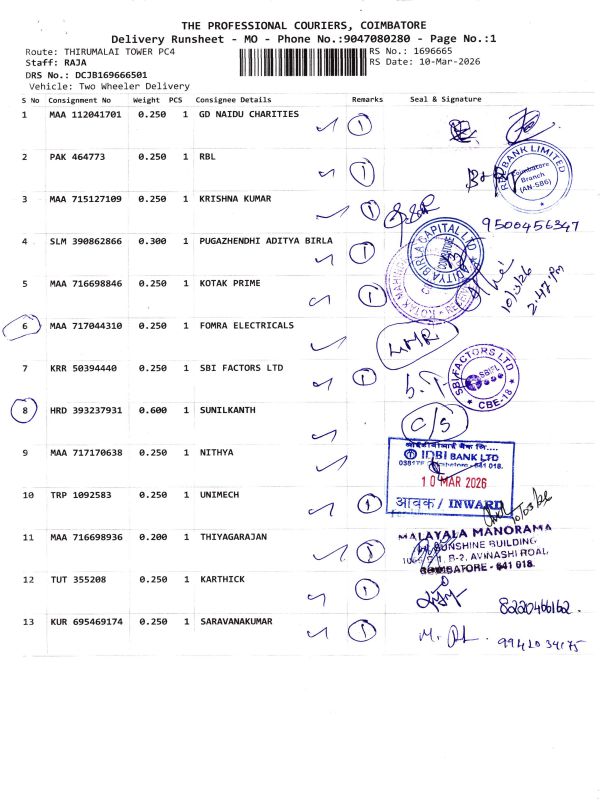 THE PROFESSIONAL COURIERS, COIMBATORE
Delivery Runsheet - MO - Phone No.:9047080280 - Page No.:1
Route: THIRUMALAI TOWER PC4
RS No.: 1696665
Staff: RAJA
RS Date: 10-Mar-2026
DRS No.: DCJB169666501
Vehicle: Two Wheeler Delivery
S No Consignment No Weight PCS Consignee Details Remarks Seal & Signature
1 MAA 112041701 0.250 1 GD NAIDU CHARITIES 1
2 PAK 464773 0.250 1 RBL 1
RBL BANK LIMITED
Coimbatore
Branch
(AN-SB6)
3 MAA 715127109 0.250 1 KRISHNA KUMAR 1
9500456347
4 SLM 390862866 0.300 1 PUGAZHENDHI ADITYA BIRLA 1
ADITYA BIRLA CAPITAL LTD
COIMBATORE
5 MAA 716698846 0.250 1 KOTAK PRIME 1
KOTAK MAHINDRA
10/3/26
2:47 Pm
6 MAA 717044310 0.250 1 FOMRA ELECTRICALS
7 KRR 50394440 0.250 1 SBI FACTORS LTD 1
SBI FACTORS LTD
SBIFL
CBE-18
8 HRD 393237931 0.600 1 SUNILKANTH
C/S
9 MAA 717170638 0.250 1 NITHYA
IDBI BANK LTD
641 018.
10 MAR 2026
आवक / INWARD
10 TRP 1092583 0.250 1 UNIMECH 1
10/03/26
11 MAA 716698936 0.200 1 THIYAGARAJAN 1
MALAYALA MANORAMA
SUNSHINE BUILDING
B-2, AVINASHI ROAD,
COIMBATORE - 641 018.
12 TUT 355208 0.250 1 KARTHICK 1
13 KUR 695469174 0.250 1 SARAVANAKUMAR 1